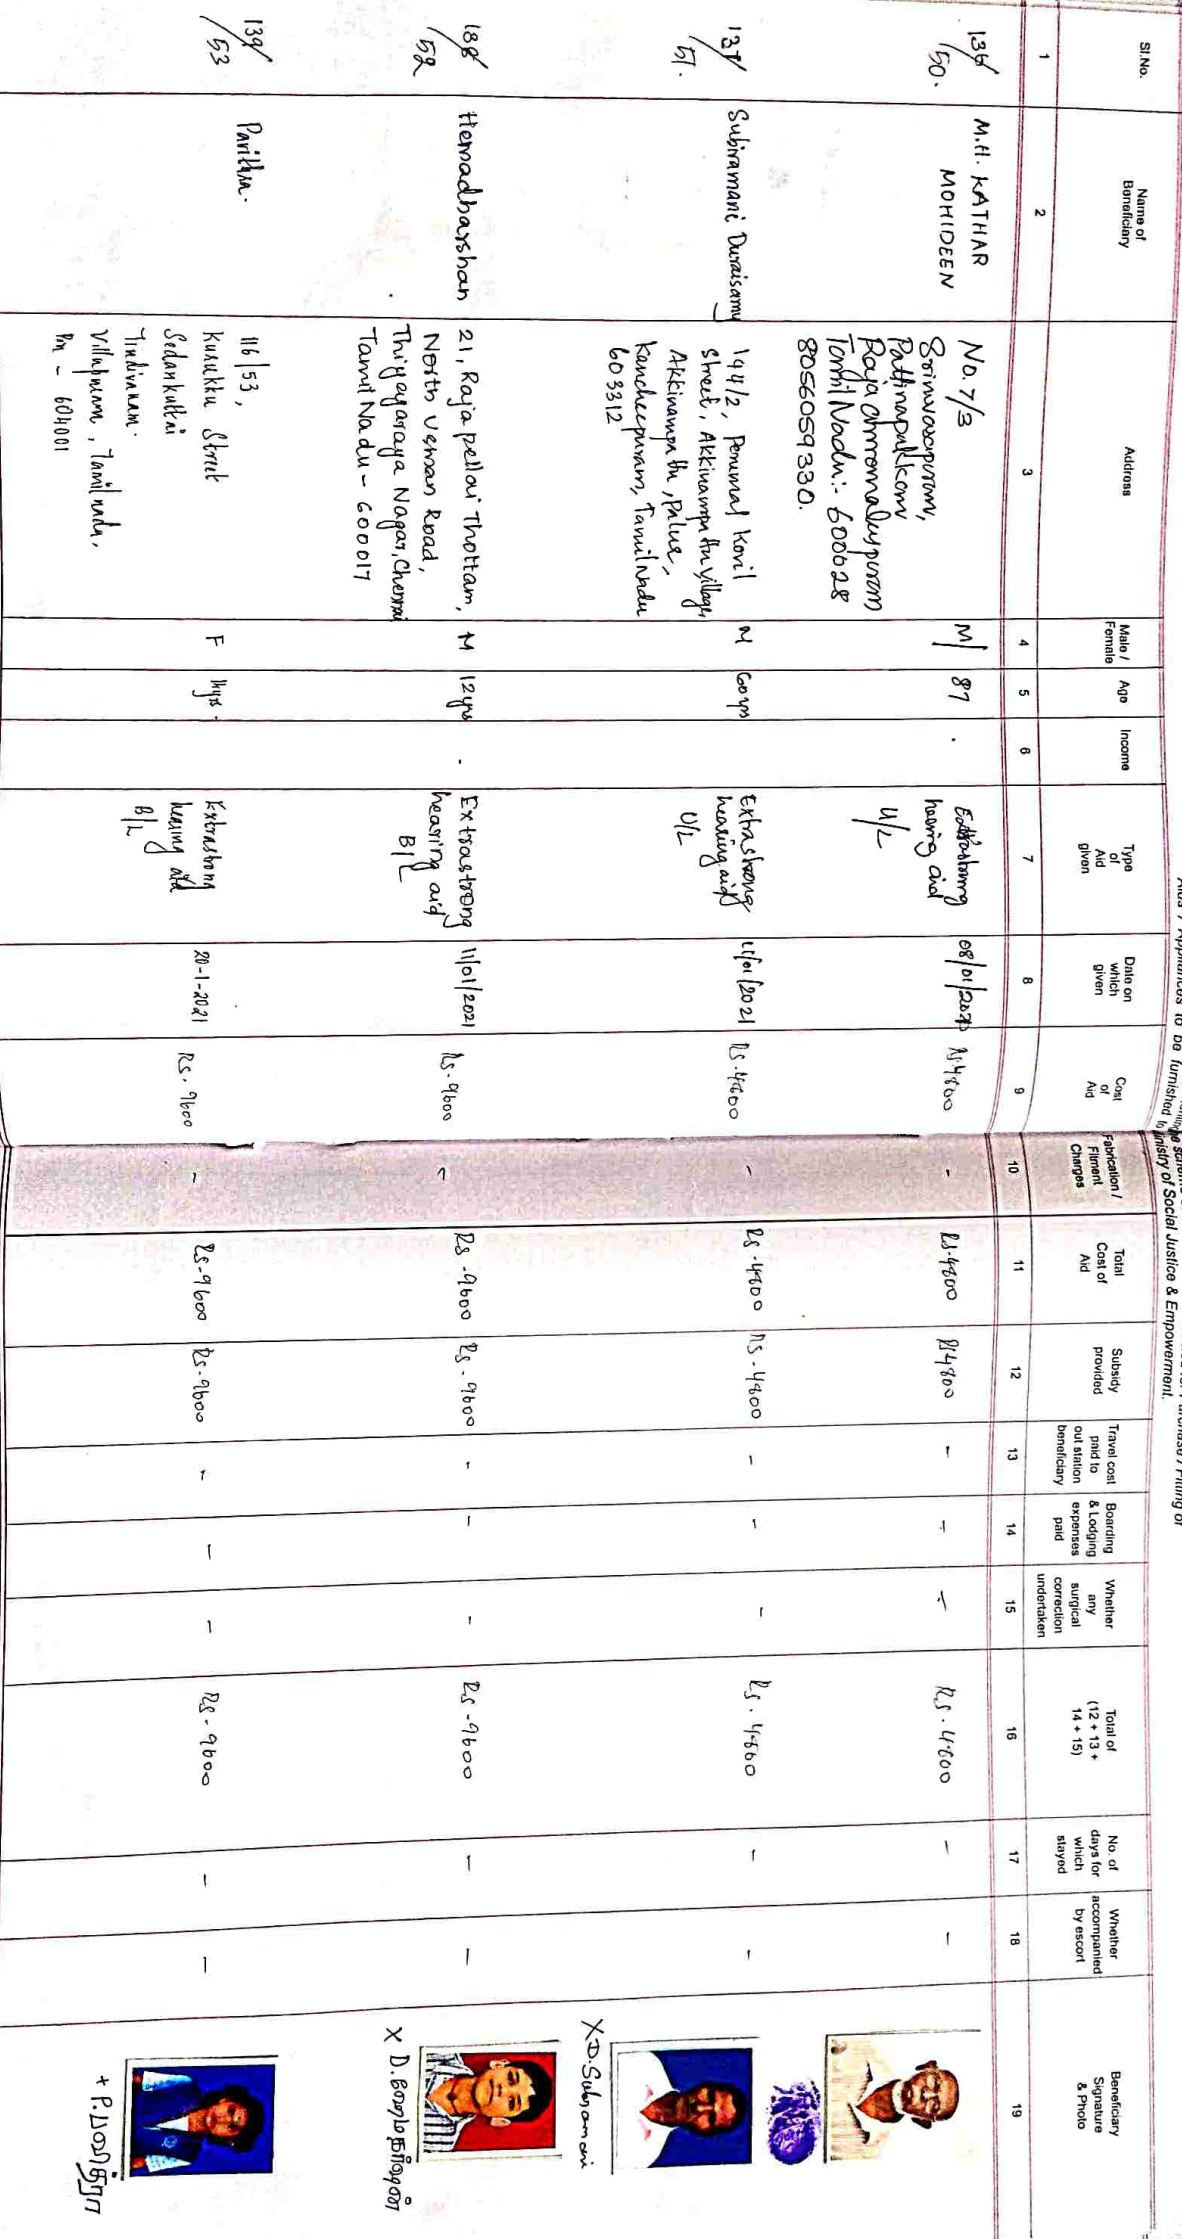 Aids / Appliances to be furnished to Ministry of Social Justice & Empowerment.
Sl.No.
Name of
Beneficiary
Address
Male /
Female
Age
Income
Type
of
Aid
given
Date on
which
given
Cost
of
Aid
Fabrication /
Fitment
Charges
Total
Cost of
Aid
Subsidy
provided
Travel cost
paid to
out station
beneficiary
Boarding
& Lodging
expenses
paid
Whether
any
surgical
correction
undertaken
Total of
(12 + 13 +
14 + 15)
No. of
days for
which
stayed
Whether
accompanied
by escort
Beneficiary
Signature
& Photo
1 2 3 4 5 6 7 8 9 10 11 12 13 14 15 16 17 18 19
136/
50.
M.H. KATHAR
MOHIDEEN
No. 7/3
Srinivasapuram,
Pattinapakkam
Raja annamalaypuram
Tamil Nadu:- 600028
8056059330.
M/
87
.
Extrastrong
hearing aid
U/L
08/01/2021
Rs.4800
-
Rs.4800
Rs4800
-
-
-
Rs.4800
-
-
137/
51.
Subiramani Duraisamy
144/2, Perumal Kovil
Street, Akkinampattu village,
Akkinampattu, Palur,
Kancheepuram, Tamil Nadu
603312
M
60yrs
Extrastrong
hearing aid
U/L
11/01/2021
Rs.4800
-
Rs.4800
Rs.4800
-
-
-
Rs.4800
-
-
X D.Subramani
138/
52
Hemadharshan
21, Raja pellai Thottam,
North usman Road,
Thiyagaraya Nagar, Chennai
Tamil Nadu - 600017
M
12yrs
.
Extrastrong
hearing aid
B/L
11/01/2021
Rs.9600
-
Rs.9600
Rs.9600
-
-
-
Rs.9600
-
-
X D.
139/
53
Pavithra.
116/53,
Kurukku Street
Sedankuttai
Tindivanam.
Villupuram, Tamil nadu,
Pin - 604001
F
Extrastrong
hearing aid
B/L
20-1-2021
Rs.9600
-
Rs-9600
Rs-9600
-
-
-
Rs-9600
-
-
+ P.பவித்ரா